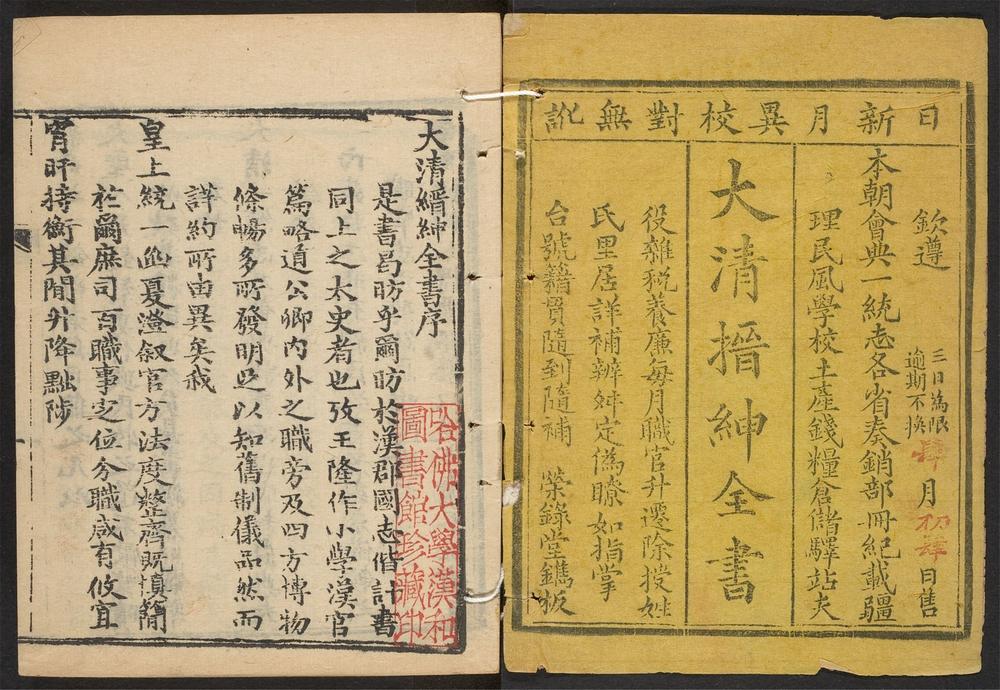 日新月異校對無訛
欽遵
三日為限
逾期不換
肆月初肆日售
本朝會典一統志各省奏銷部冊紀載疆
理民風學校土產錢糧倉儲驛站夫
大清搢紳全書
役雜稅養廉每月職官升遷除授姓
氏里居詳補辨舛定偽瞭如指掌
台號籍貫隨到隨補
榮錄堂鐫板
大清縉紳全書序
是書曷昉乎爾昉於漢郡國志偕計書
同上之太史者也攷王隆作小學漢官
篇略道公卿內外之職旁及四方博物
條暢多所發明足以知舊制儀品然而
詳約所由異矣我
皇上統一函夏澄叙官方法度整齊既慎簡
於爾庶司百職事定位分職咸有攸宜
宵旰持衡其閒升降黜陟
哈佛大學漢和
圖書館珍藏印